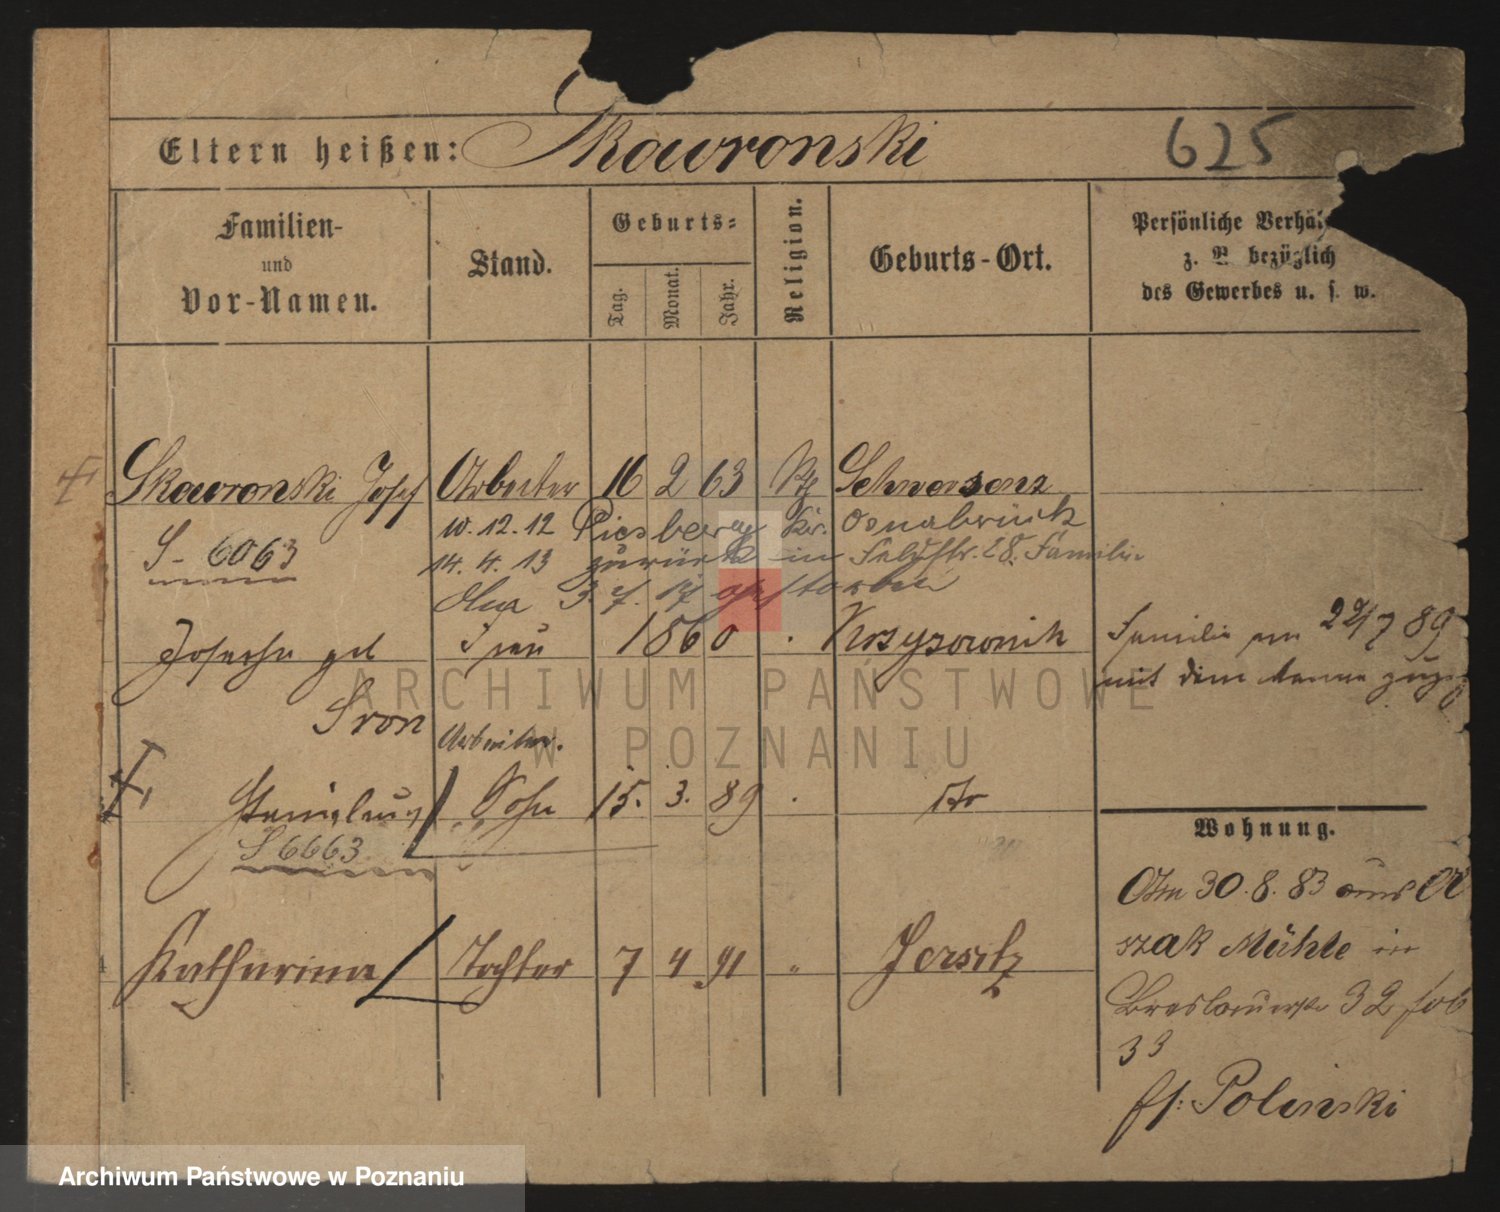 Eltern heißen: Skowronski
625
Familien-
und
Vor-Namen.
Stand.
Geburts=
Tag.
Monat.
Jahr.
Religion.
Geburts-Ort.
Persönliche
z. B. bezüglich
des Gewerbes u. s. w.
Skowronski Josef Arbeiter 16 2 63 Schwersenz
10.12.12 Piesberg Kr. Osnabrück
S- 6063
14. 4. 13 zurück in 28. Familie
3. 7. 17 gestorben
Josepha geb Frau 1860 Krzyzownik
Sron
Familie am 22/7 89
mit dem Manne
Arbeiter.
Stanislaus Sohn 15. 3. 89 do
S 6663
Wohnung.
Am 30.8.83 aus
Katharina Tochter 7 4 91 " Jersitz
szak Mühle in
Breslauerstr 32
33
Polinski
ARCHIWUM PAŃSTWOWE
W POZNANIU
Archiwum Państwowe w Poznaniu